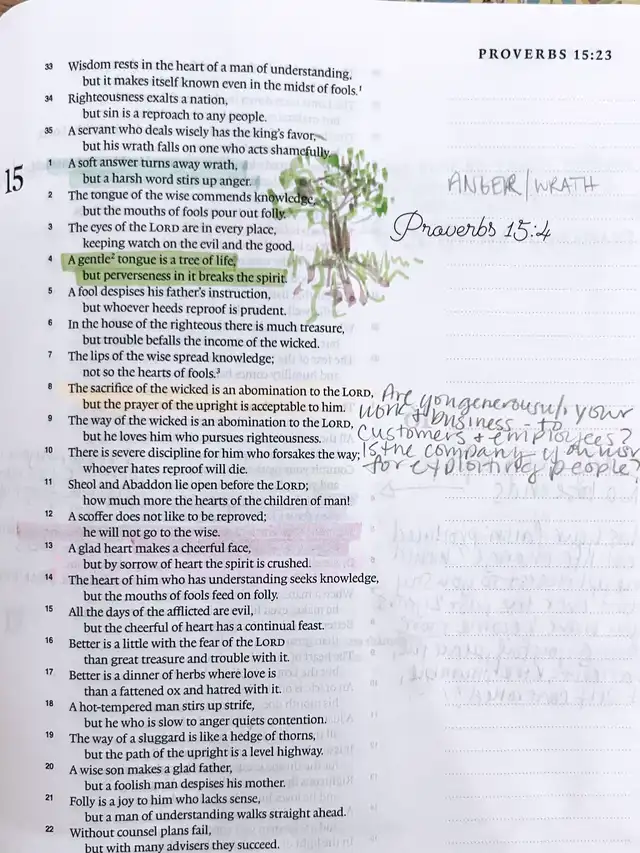 PROVERBS 15:23
33 Wisdom rests in the heart of a man of understanding,
but it makes itself known even in the midst of fools.¹
34 Righteousness exalts a nation,
but sin is a reproach to any people.
35 A servant who deals wisely has the king's favor,
but his wrath falls on one who acts shamefully.
15
1 A soft answer turns away wrath,
but a harsh word stirs up anger.
2 The tongue of the wise commends knowledge,
but the mouths of fools pour out folly.
3 The eyes of the LORD are in every place,
keeping watch on the evil and the good.
4 A gentle² tongue is a tree of life,
but perverseness in it breaks the spirit.
5 A fool despises his father's instruction,
but whoever heeds reproof is prudent.
6 In the house of the righteous there is much treasure,
but trouble befalls the income of the wicked.
7 The lips of the wise spread knowledge;
not so the hearts of fools.³
8 The sacrifice of the wicked is an abomination to the LORD,
but the prayer of the upright is acceptable to him.
9 The way of the wicked is an abomination to the LORD,
but he loves him who pursues righteousness.
10 There is severe discipline for him who forsakes the way;
whoever hates reproof will die.
11 Sheol and Abaddon lie open before the LORD;
how much more the hearts of the children of man!
12 A scoffer does not like to be reproved;
he will not go to the wise.
13 A glad heart makes a cheerful face,
but by sorrow of heart the spirit is crushed.
14 The heart of him who has understanding seeks knowledge,
but the mouths of fools feed on folly.
15 All the days of the afflicted are evil,
but the cheerful of heart has a continual feast.
16 Better is a little with the fear of the LORD
than great treasure and trouble with it.
17 Better is a dinner of herbs where love is
than a fattened ox and hatred with it.
18 A hot-tempered man stirs up strife,
but he who is slow to anger quiets contention.
19 The way of a sluggard is like a hedge of thorns,
but the path of the upright is a level highway.
20 A wise son makes a glad father,
but a foolish man despises his mother.
21 Folly is a joy to him who lacks sense,
but a man of understanding walks straight ahead.
22 Without counsel plans fail,
but with many advisers they succeed.
ANGER/WRATH
Proverbs 15:4
Are you generous w/ your
work & business - to
customers & employees?
Is the company you
for exploiting people?